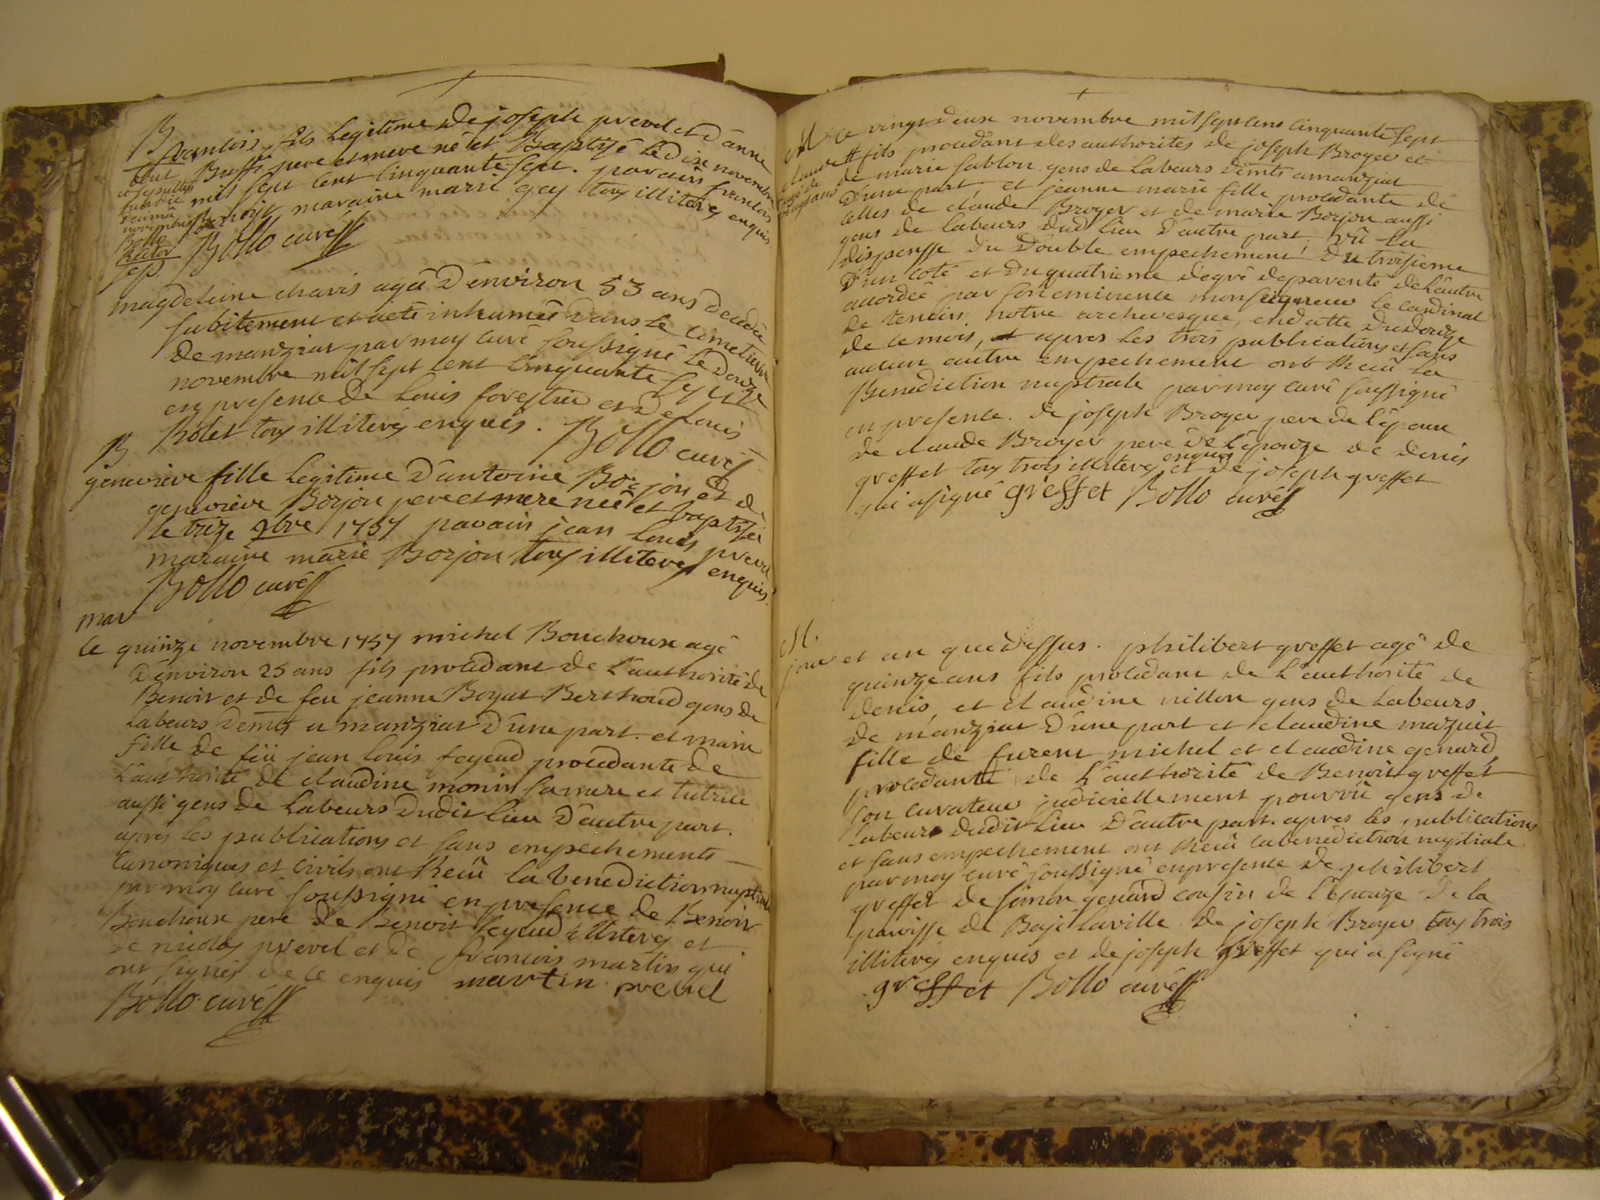 B
françois fils legitime de joseph prevel et d'anne
Buffi pere et mere né et Baptisé le dix novembre
mil sept cent cinquante sept. parain françois
maraine marie gay tous illiterés enquis
Bollo curé
magdeleine chavis agée d'environ 53 ans decedée
subitement et a eté inhumée dans le cemetierre
de manziat par moy curé soussigné le douze
novembre mil sept cent cinquante sept
en presence de Louis forestier et de Louis
Bolet tous illiterés enquis. Bollo curé
B
geneviève fille legitime d'antoine Borjon et de
geneviève Borjon pere et mere née et baptisée
le treize 9bre 1757 parain jean Louis prevel
maraine marie Borjon tous illiterés enquis.
Bollo curé
mar
le quinze novembre 1757 michel Bouchoux agé
d'environ 25 ans fils procedant de l'authorité de
Benoit et de feu jeanne Boyat Berthoud gens de
Labeurs demts a manziat d'une part. et marie
fille de feü jean Louis feyeud procedante de
l'authorité de claudine monin sa mere et tutrice
aussi gens de Labeurs dudit lieu d'autre part.
apres les publications et sans empechements
canoniques et civils ont Reçû la benediction nuptiale
par moy curé soussigné en presence de Benoit
Bouchoux pere de Benoit feyeud illiterés et
de nicolas prevel et de francois martin qui
ont signés de ce enquis martin prevel
Bollo curé
M Le vingt deux novembre mil sept cens cinquante sept
claude fils procedant des authorités de joseph Broyer et
de marie sablon gens de Labeurs demts a manziat
d'une part et jeanne marie fille procedante de
celles de claude Broyer et de marie Borjon aussi
gens de Labeurs dud. Lieu d'autre part, vû la
dispensse du double empechement, du troisieme
d'un coté et du quatrieme degré de parenté de l'autre
accordée par son eminence monseigneur le cardinal
de tencin, notre archevesque, en datte du douze
de ce mois, apres les trois publications et sans
aucun autre empechement ont Reçû la
Benediction nuptiale par moy curé soussigné
en presence. de joseph Broyer pere de l'époux
de claude Broyer pere de l'épouze de denis
greffet tous trois illiterés enquis et de joseph greffet
qui a signé greffet Bollo curé
M.
jour et an que dessus. philibert greffet agé de
quinze ans fils procedant de l'authorité de
denis, et claudine nillon gens de Labeurs
de manziat d'une part et claudine mazuit
fille de furent michel et claudine genard
procedante de l'authorité de Benoit greffet
son curateur judiciellement pourvû gens de
Labeurs dudit Lieu d'autre part. apres les publications
et sans empechement ont Reçû la benediction nuptiale
par moy curé soussigné en presence de philibert
greffet de simon genard cousin de l'épouze de la
paroisse de Bagé laville de joseph Broyer tous trois
illiterés enquis et de joseph greffet qui a signé
greffet Bollo curé